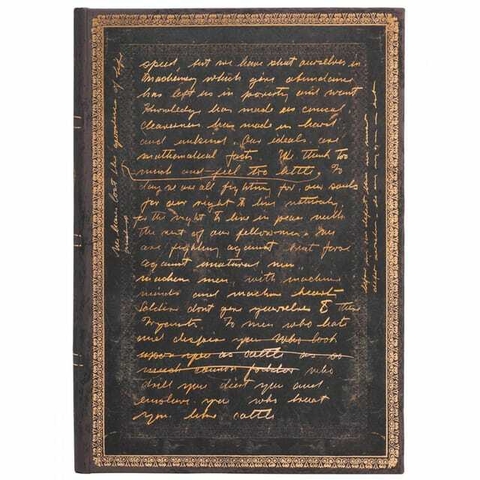 speed, but we have shut ourselves in
Machinery which gives abundance
has left us in poverty and want
Knowledge has made us cynical
cleverness has made us hard
and unkind. Our ideals are
mathematical facts. We think too
much and feel too little. To
day we are all fighting for our souls
for our right to live naturally
for the right to live in peace with
the rest of our fellowmen. We
are fighting against
against unatural men,
machine men, with machine
minds and machine hearts
Soldiers dont give yourselves to these
To men who hate
and despise you Who look
upon you as cattle and as
cannon fodder who
drill you diet you and
enslave you who treat
you like cattle
We have lost the of life